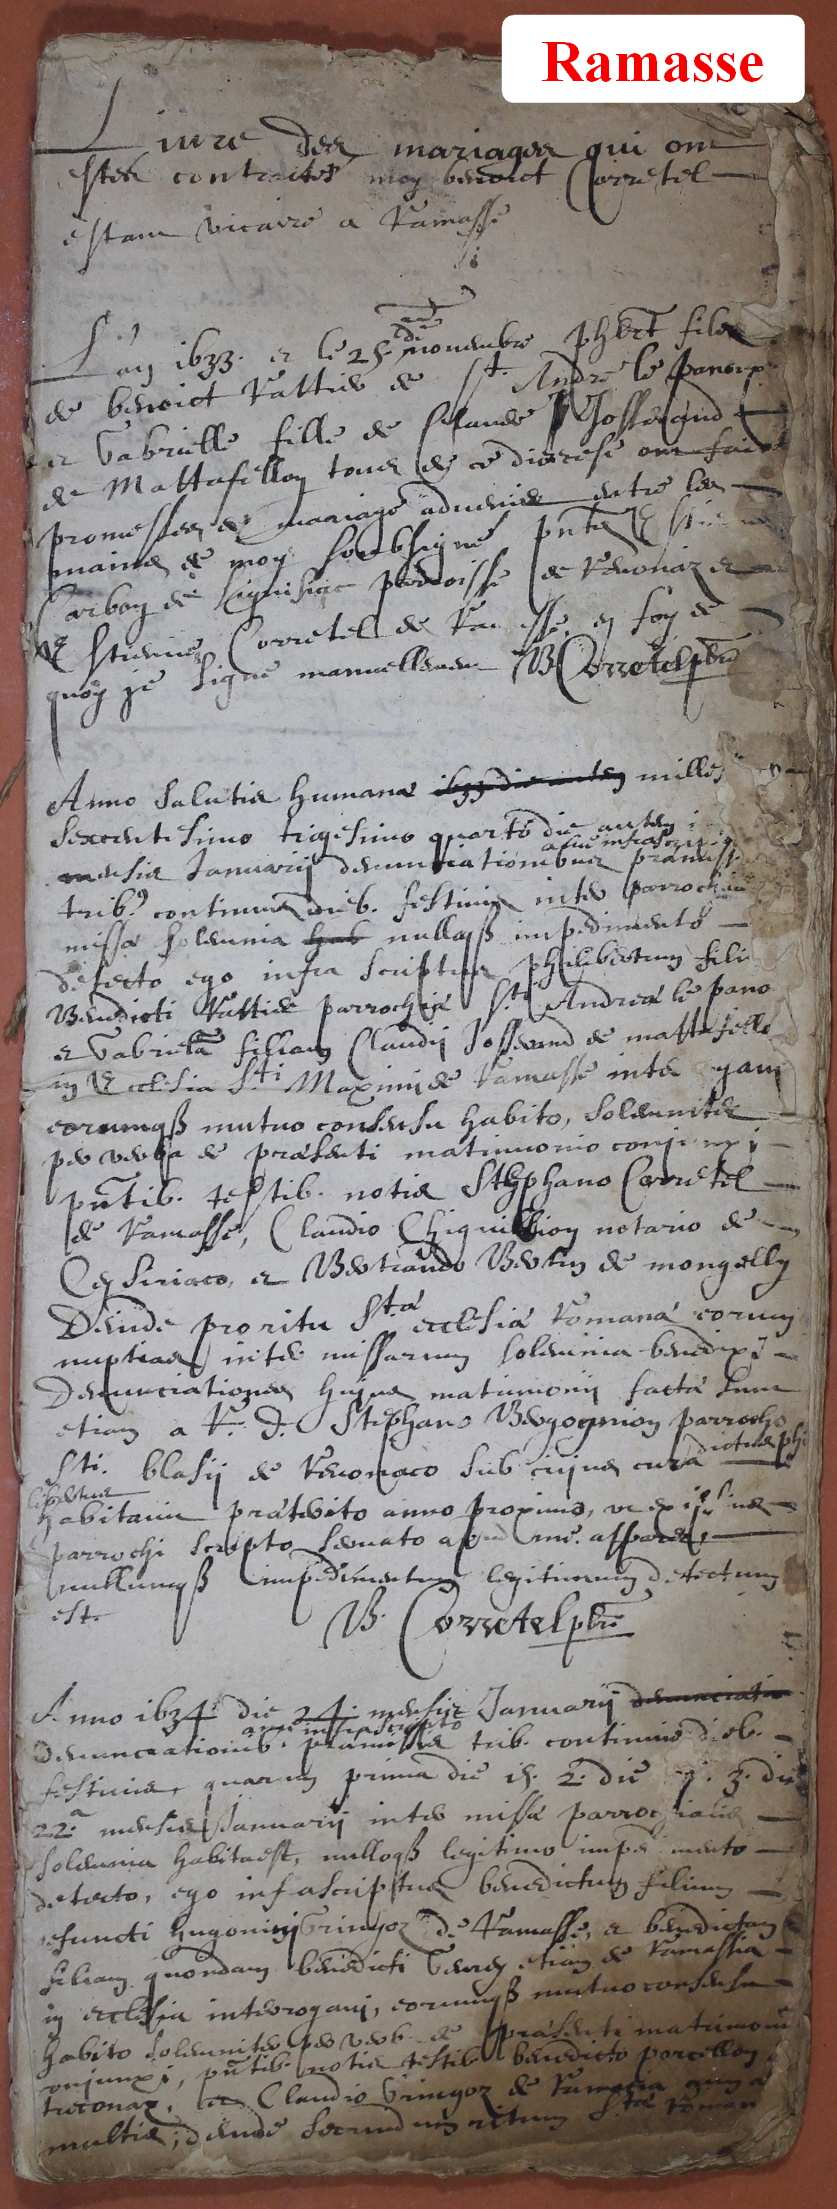 Ramasse
Livre des mariages qui ont
estez contraictes moy benoict Corretel
estant vicaire a Ramasse
L'an 1633. et le 25. de novembre phbert filz
de benoict Rattier de St. André le panoux
et Gabrielle fille de Claude Josserand
de Mattafellon tous de ce diocese ont faict
promesses de mariage advenir entre les
mains de moy soubsigné pnts Estienne
Carbon de parroisse de Revonaz et
Estienne Corretel de Ramasse, en foy de
quoy je signe manuellement B Corretel pbre
Anno salutis humanae millesimo
sexcentesimo trigesimo quarto die autem
mensis Januarij denunciationibus a me infrascripto praemissis
trib. continuis dieb. festivis inter parrochialis
missae solemnia nulloqß impedimento
detecto ego infra scriptus philibertum filium
Benedicti Rattier parrochiae Sti Andreae le pano
et Gabrielam filiam Claudij Josserand de mattafello
in Ecclesia Sti Maximi de Ramasse interrogavi
eorumqß mutuo consensu habito, solemniter
per verba de praesenti matrimonio conjunxi
pntib. testib. notis Stephano Corretel
de Ramasse, Claudio Chiquillion notario de
Ceysiriaco, et Bertrando Bertin de mongelly
Deinde pro ritu Stae ecclesiae Romanae eorum
nuptias inter missarum solemnia benedixi
Denunciationes hujus matrimonij factae sunt
etiam a R. D. Stephano parrocho
Sti. blasij de Revonaco sub cujus cura dictus phi
libertus
habitavit praeterito anno proximo, ut ex ipsius
parrochi scripto servato apud me. apparet,
nullumqß impedimentum legitimum detectum
est.
B. Corretel pbre
Anno 1634 die 24. mensis Januarij denunciatio
Denunciationib. a me infrascripto praemissis trib. continuis dieb.
festivis, quarum prima die 15. 2. die 3. die
22.a mensis Januarij inter missae parrochialis
solemnia habita est, nulloqß legitimo impedimento
detecto, ego infrascriptus benedictum filium
defuncti hugonini Gringoz de Ramasse, et benedictam
filiam quondam benedicti etiam de Ramassia
in ecclesia interrogavi, eorumqß mutuo consensu
habito solemniter per verb. de praesenti matrimonio
conjunxi, pntib. notis testib. benedicto porcellon
treconaz, et Claudio Gringoz de Ramassia
multis; deinde secundum ritum Stae Roman